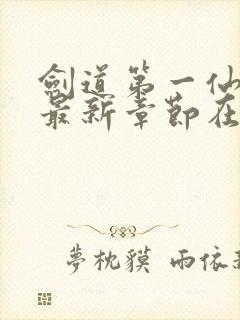 劍道第一仙
最新章節在
夢枕貘 雨依